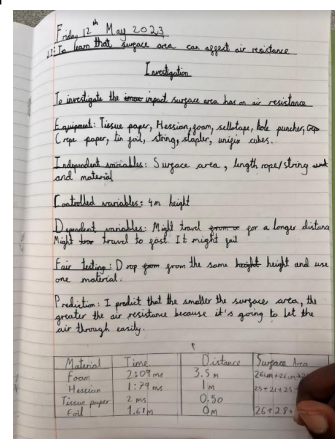 Friday 12th May 2023
LI: To learn that surface area can affect air resistance
Investigation
To investigate the impact surface area has on air resistance
Equipment: Tissue paper, Hessian, foam, sellotape, hole puncher,
Crepe paper, tin foil, string, stapler, unifix cubes.
Independent variables: Surface area, length, rope/string
and material
Controlled variables: 4m height
Dependent variables: Might travel for a longer distanc
Might travel to fast. It might fail
Fair testing: Drop from the same height and use
one material.
Prediction: I predict that the smaller the surface area, the
greater the air resistance because it's going to let the
air through easily.
Material Time Distance Surface Area
Foam 2:09 ms 3.5m
Hessian 1:79 ms 1m 25+21+25
Tissue paper 2 ms 0.50
Foil 1.61 0m 26+28+